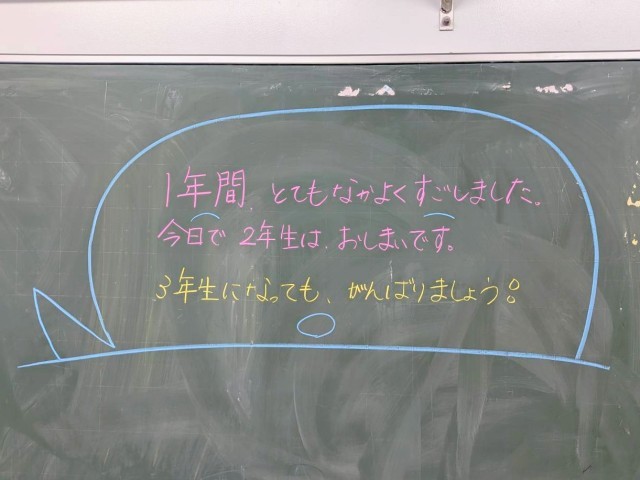 1年間、とてもなかよくすごしました。
今日で2年生は、おしまいです。
3年生になっても、がんばりましょう!